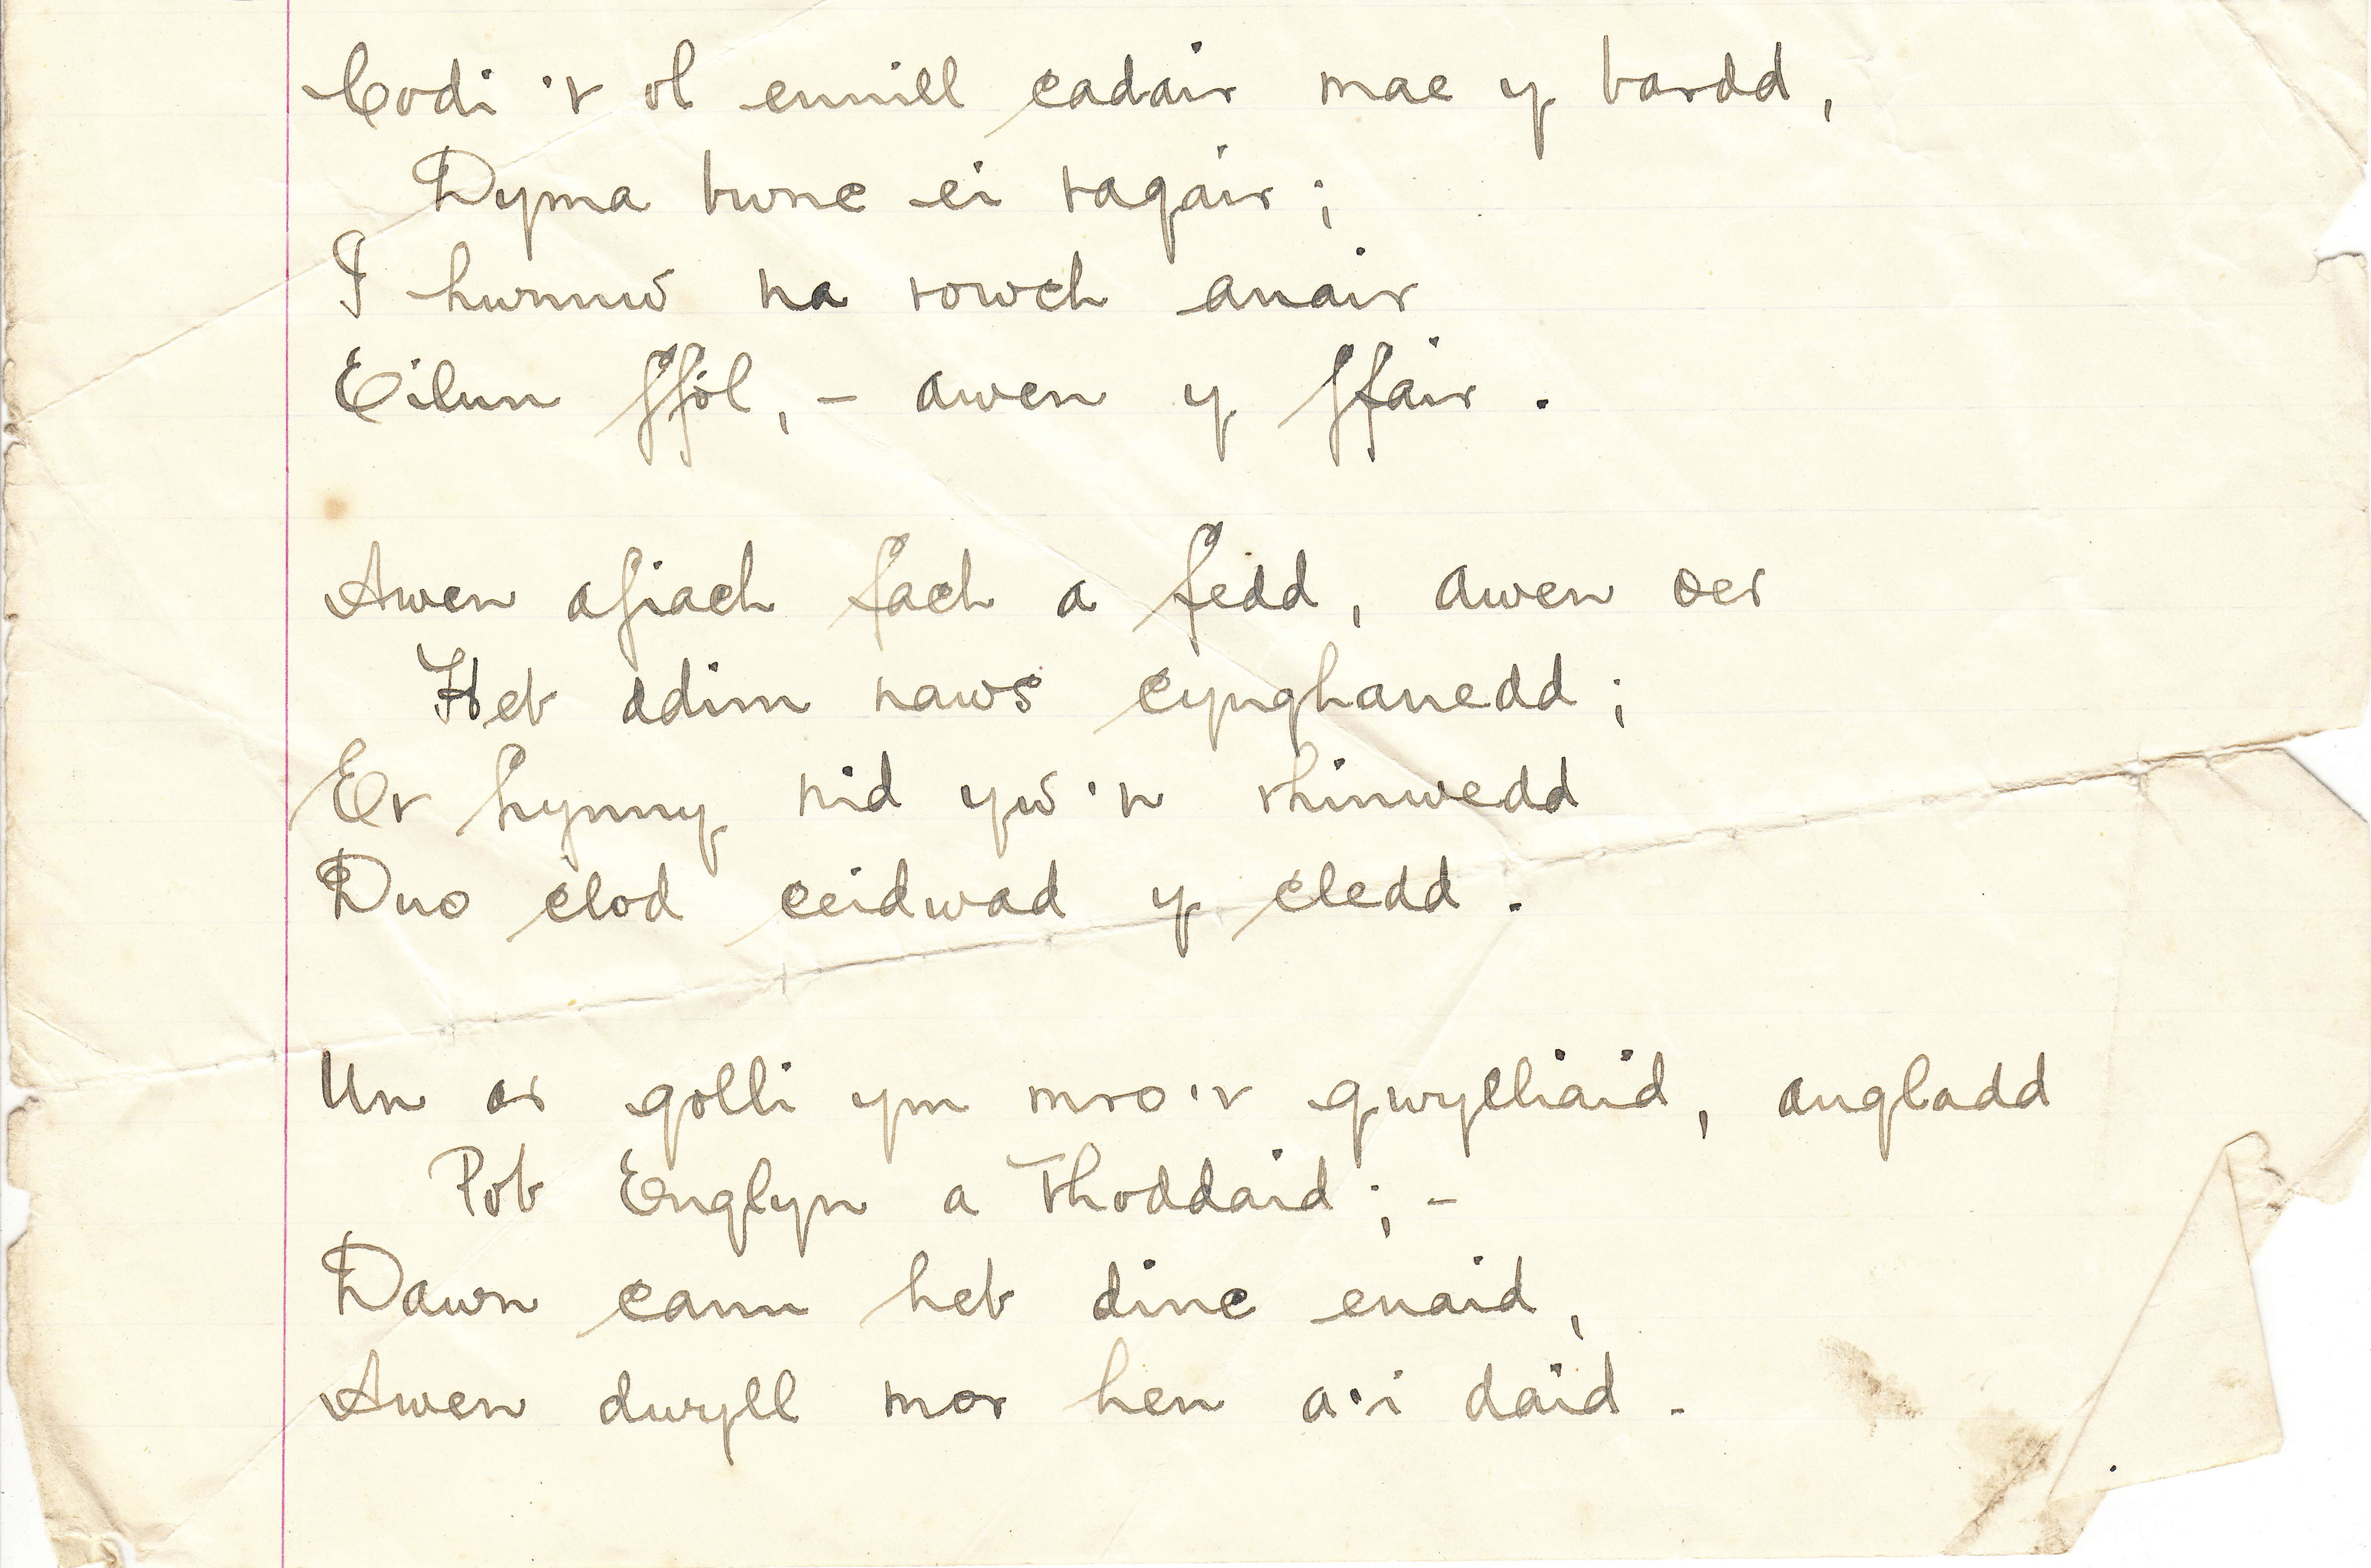 Codi 'r ol ennill cadair mae y bardd,
Dyma bwnc ei ragair;
I hwnnw na rowch anair
Eilun ffôl, - awen y ffair.
Awen afiach fach a fedd, awen oer
Heb ddim naws cynghanedd;
Er hynny nid yw'n rhinwedd
Duo clod ceidwad y cledd.
Un ar golli ym mro'r gwylliaid, angladd
Pob Englyn a Thoddaid; -
Dawn canu heb dinc enaid,
Awen dwyll mor hen a'i daid.